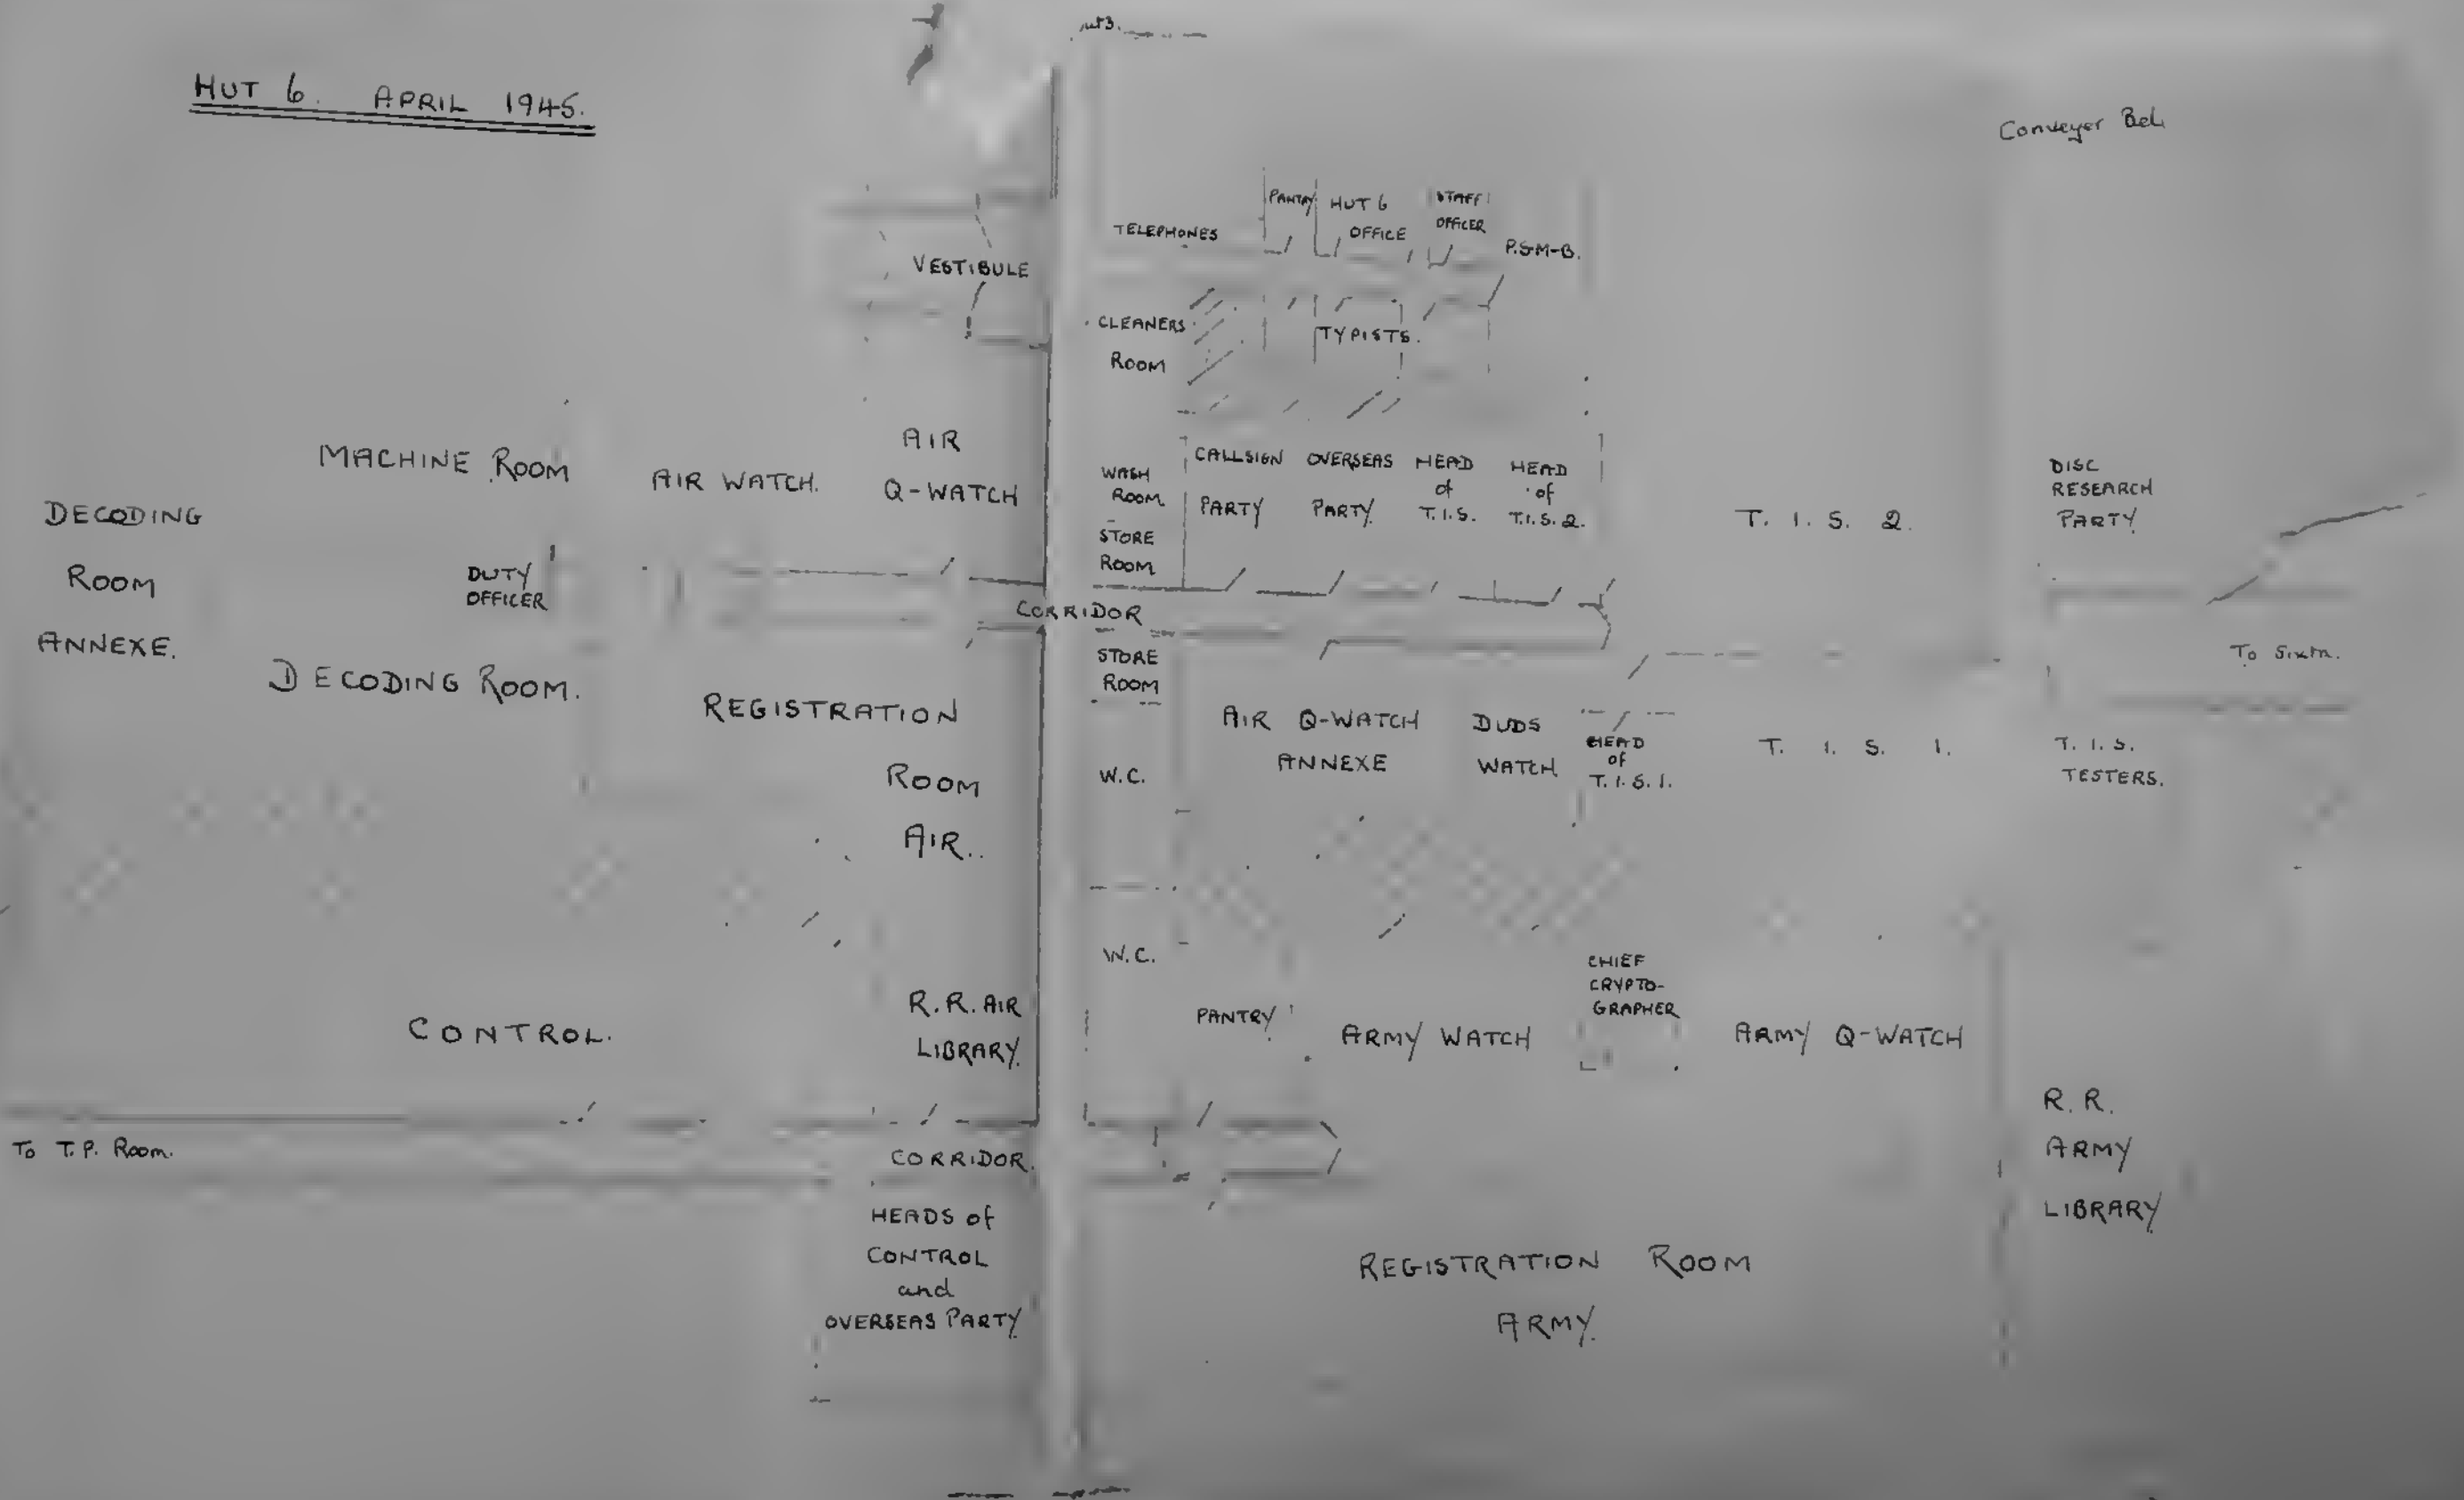 HUT 6. APRIL 1945.
Conveyer
PANTRY
HUT 6
OFFICE
STAFF
OFFICER
P.S.M-B.
TELEPHONES
VESTIBULE
CLEANERS
ROOM
TYPISTS.
MACHINE ROOM
AIR WATCH.
AIR
Q-WATCH
WASH
ROOM
STORE
ROOM
CALLSIGN
PARTY
OVERSEAS
PARTY
HEAD
of
T.I.S.
HEAD
of
T.I.S.2.
T. I. S. 2.
DISC
RESEARCH
PARTY
DECODING
ROOM
ANNEXE.
DUTY
OFFICER
CORRIDOR
DECODING ROOM.
REGISTRATION
ROOM
AIR.
STORE
ROOM
W.C.
AIR Q-WATCH
ANNEXE
DUDS
WATCH
HEAD
of
T.I.S.1.
T. I. S. 1.
T.I.S.
TESTERS.
To
W.C.
CONTROL.
R.R. AIR
LIBRARY.
PANTRY
ARMY WATCH
CHIEF
CRYPTO-
GRAPHER
ARMY Q-WATCH
R.R.
ARMY
LIBRARY
To T.P. Room.
CORRIDOR.
HEADS of
CONTROL
and
OVERSEAS PARTY
REGISTRATION ROOM
ARMY.